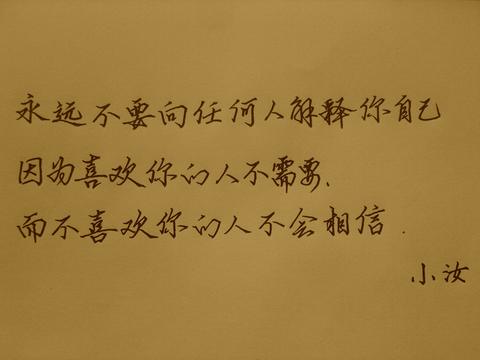 永远不要向任何人解释你自己
因为喜欢你的人不需要、
而不喜欢你的人不会相信.
小汝